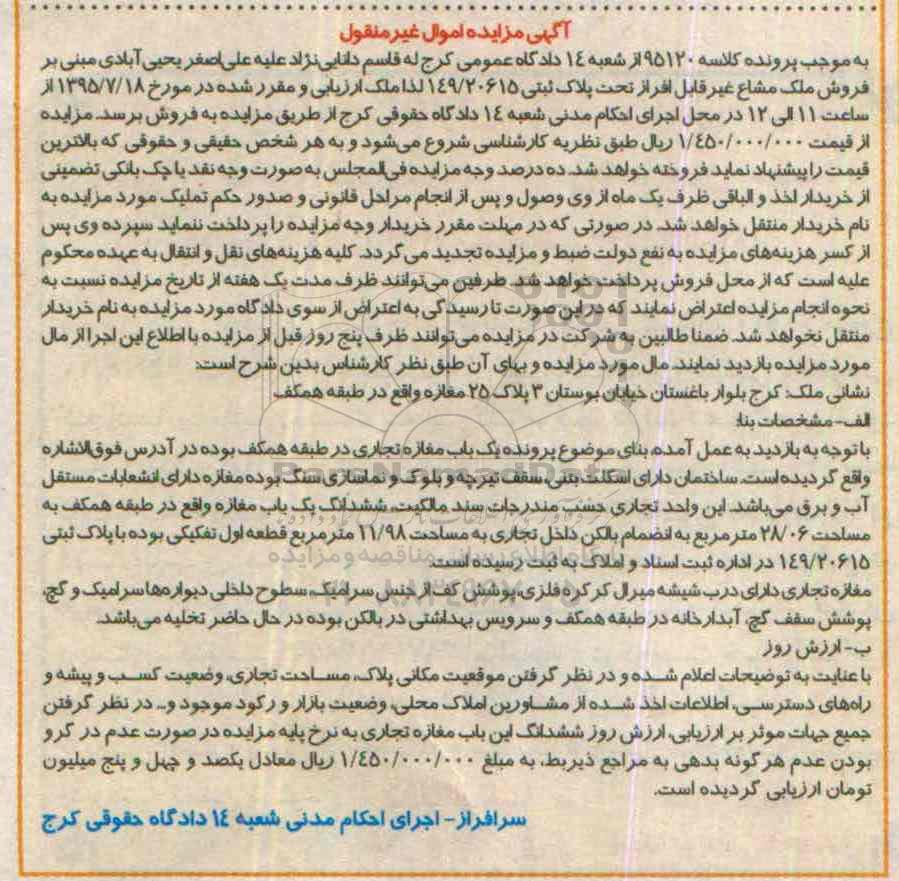 آگهی مزایده اموال غیرمنقول
به موجب پرونده کلاسه ۹۵۱۲۰ از شعبه ۱۴ دادگاه عمومی کرج له قاسم دانایی‌نژاد علیه علی‌اصغر یحیی‌آبادی مبنی بر
فروش ملک مشاع غیرقابل افراز تحت پلاک ثبتی ۱۴۹/۲۰۶۱۵ لذا ملک ارزیابی و مقرر شده در مورخ ۱۳۹۵/۷/۱۸ از
ساعت ۱۱ الی ۱۲ در محل اجرای احکام مدنی شعبه ۱۴ دادگاه حقوقی کرج از طریق مزایده به فروش برسد. مزایده
از قیمت ۱/۴۵۰/۰۰۰/۰۰۰ ریال طبق نظریه کارشناسی شروع می‌شود و به هر شخص حقیقی و حقوقی که بالاترین
قیمت را پیشنهاد نماید فروخته خواهد شد. ده درصد وجه مزایده فی‌المجلس به صورت وجه نقد یا چک بانکی تضمینی
از خریدار اخذ و الباقی ظرف یک ماه از وی وصول و پس از انجام مراحل قانونی و صدور حکم تملیک مورد مزایده به
نام خریدار منتقل خواهد شد. در صورتی که در مهلت مقرر خریدار وجه مزایده را پرداخت ننماید سپرده وی پس
از کسر هزینه‌های مزایده به نفع دولت ضبط و مزایده تجدید می‌گردد. کلیه هزینه‌های نقل و انتقال به عهده محکوم
علیه است که از محل فروش پرداخت خواهد شد. طرفین می‌توانند ظرف مدت یک هفته از تاریخ مزایده نسبت به
نحوه انجام مزایده اعتراض نمایند که در این صورت تا رسیدگی به اعتراض از سوی دادگاه مورد مزایده به نام خریدار
منتقل نخواهد شد. ضمنا طالبین به شرکت در مزایده می‌توانند ظرف پنج روز قبل از مزایده با اطلاع این اجرا از مال
مورد مزایده بازدید نمایند. مال مورد مزایده و بهای آن طبق نظر کارشناس بدین شرح است:
نشانی ملک: کرج بلوار باغستان خیابان بوستان ۳ پلاک ۲۵ مغازه واقع در طبقه همکف
الف- مشخصات بنا:
با توجه به بازدید به عمل آمده، بنای موضوع پرونده یک باب مغازه تجاری در طبقه همکف بوده در آدرس فوق‌الاشاره
واقع گردیده است. ساختمان دارای اسکلت بتنی، سقف تیرچه و بلوک و نماسازی سنگ بوده مغازه دارای انشعابات مستقل
آب و برق می‌باشد. این واحد تجاری حسب مندرجات سند مالکیت، ششدانگ یک باب مغازه واقع در طبقه همکف به
مساحت ۲۸/۰۶ مترمربع به انضمام بالکن داخل تجاری به مساحت ۱۱/۹۸ مترمربع قطعه اول تفکیکی بوده با پلاک ثبتی
۱۴۹/۲۰۶۱۵ در اداره ثبت اسناد و املاک به ثبت رسیده است.
مغازه تجاری دارای درب شیشه میرال کرکره فلزی، پوشش کف از جنس سرامیک، سطوح داخلی دیواره‌ها سرامیک و گچ،
پوشش سقف گچ، آبدارخانه در طبقه همکف و سرویس بهداشتی در بالکن بوده در حال حاضر تخلیه می‌باشد.
ب- ارزش روز
با عنایت به توضیحات اعلام شده و در نظر گرفتن موقعیت مکانی پلاک، مساحت تجاری، وضعیت کسب و پیشه و
راه‌های دسترسی، اطلاعات اخذ شده از مشاورین املاک محلی، وضعیت بازار و رکود موجود و... در نظر گرفتن
جمیع جهات موثر بر ارزیابی، ارزش روز ششدانگ این باب مغازه تجاری به نرخ پایه مزایده در صورت عدم در گرو
بودن عدم هرگونه بدهی به مراجع ذیربط، به مبلغ ۱/۴۵۰/۰۰۰/۰۰۰ ریال معادل یکصد و چهل و پنج میلیون
تومان ارزیابی گردیده است.
سرافراز- اجرای احکام مدنی شعبه ۱۴ دادگاه حقوقی کرج
ParsNamadData